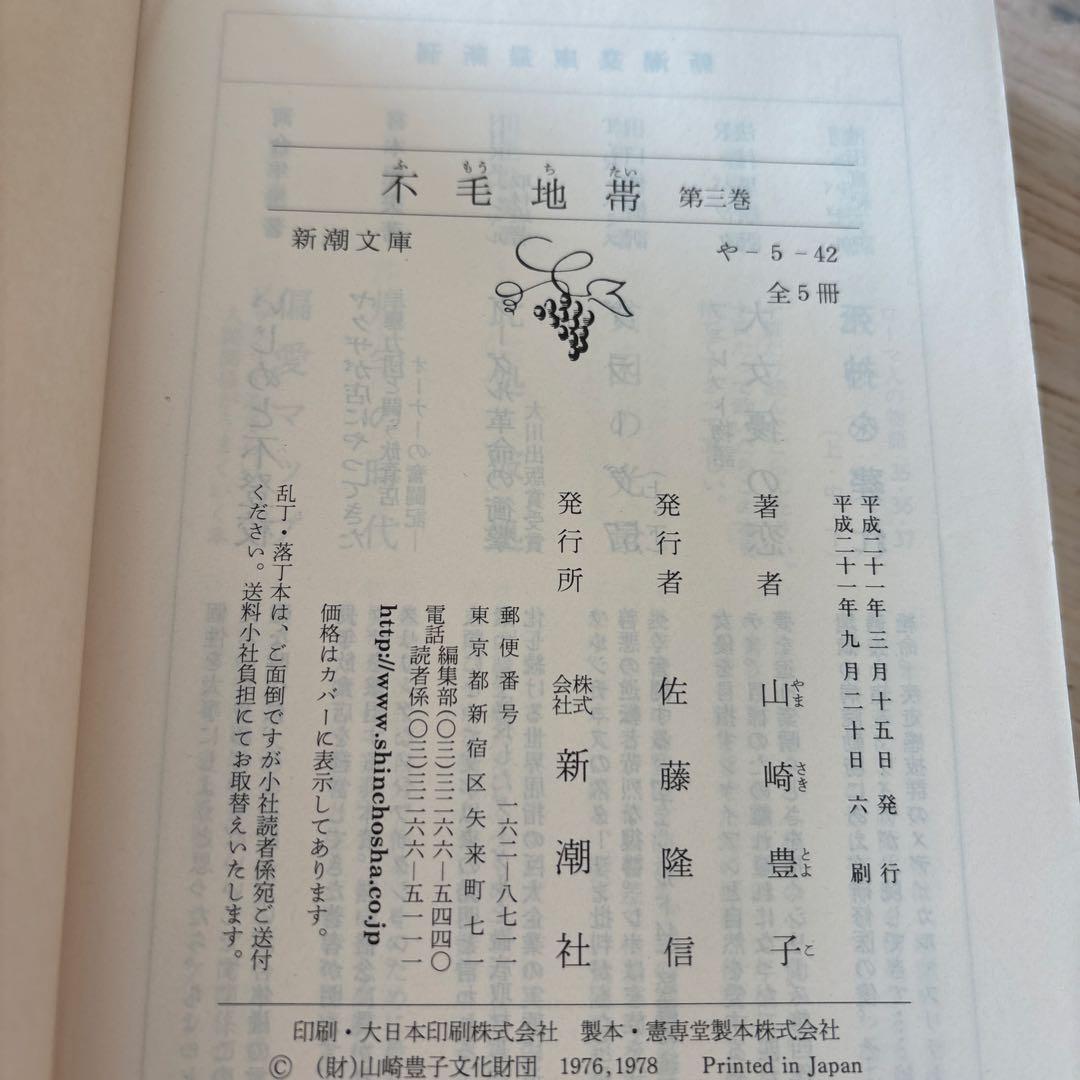 不毛地帯 第三巻
ふ もう ち たい
新潮文庫
や-5-42
全5冊
平成二十一年三月十五日 発行
平成二十一年九月二十日 六刷
著者 山崎豊子
やま さき とよ こ
発行者 佐藤隆信
発行所 株式会社 新潮社
郵便番号 一六二―八七一一
東京都新宿区矢来町七一
電話 編集部(〇三)三二六六―五四四〇
読者係(〇三)三二六六―五一一一
http://www.shinchosha.co.jp
価格はカバーに表示してあります。
乱丁・落丁本は、ご面倒ですが小社読者係宛ご送付
ください。送料小社負担にてお取替えいたします。
印刷・大日本印刷株式会社 製本・憲専堂製本株式会社
© (財)山崎豊子文化財団 1976,1978 Printed in Japan